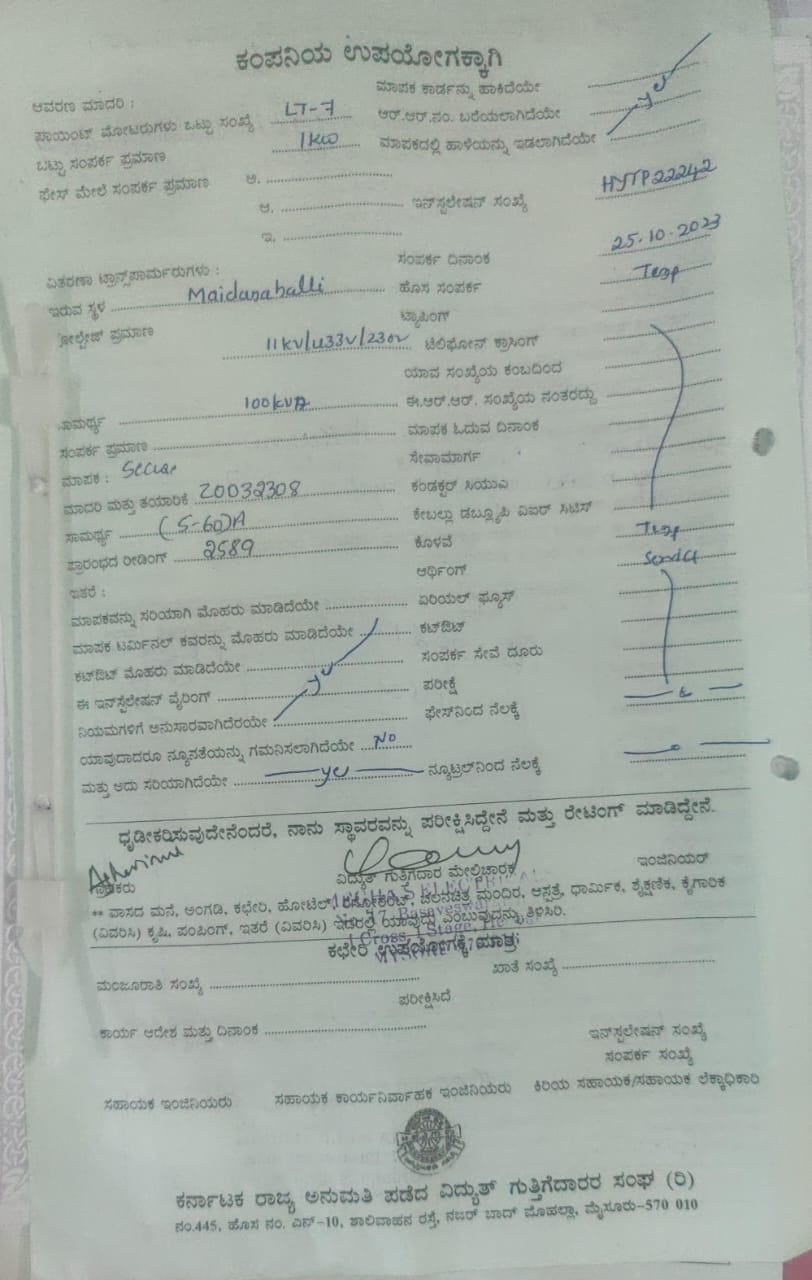 ಕಂಪನಿಯ ಉಪಯೋಗಕ್ಕಾಗಿ
ಆವರಣ ಮಾದರಿ : ಮಾಪಕ ಕಾರ್ಡನ್ನು ಹಾಕಿದೆಯೇ
ಪಾಯಿಂಟ್ ಮೋಟರುಗಳು ಒಟ್ಟು ಸಂಖ್ಯೆ LT-7 ಆರ್.ಆರ್.ನಂ. ಬರೆಯಲಾಗಿದೆಯೇ
ಒಟ್ಟು ಸಂಪರ್ಕ ಪ್ರಮಾಣ 1KW ಮಾಪಕದಲ್ಲಿ ಹಾಳೆಯನ್ನು ಇಡಲಾಗಿದೆಯೇ
ಫೇಸ್ ಮೇಲೆ ಸಂಪರ್ಕ ಪ್ರಮಾಣ ಅ.
ಆ. ಇನ್‌ಸ್ಟಲೇಷನ್ ಸಂಖ್ಯೆ HYTP22242
ಇ.
ಸಂಪರ್ಕ ದಿನಾಂಕ 25.10.2023
ವಿತರಣಾ ಟ್ರಾನ್ಸ್‌ಫಾರ್ಮರುಗಳು :
ಇರುವ ಸ್ಥಳ Maidanahalli ಹೊಸ ಸಂಪರ್ಕ Temp
ಪ್ರಮಾಣ ಟ್ಯಾಪಿಂಗ್
11KV/433V/230V ಟೆಲಿಫೋನ್ ಕ್ರಾಸಿಂಗ್
ಯಾವ ಸಂಖ್ಯೆಯ ಕಂಬದಿಂದ
ಸಾಮರ್ಥ್ಯ 100KVA ಈ.ಆರ್.ಆರ್. ಸಂಖ್ಯೆಯ ನಂತರದ್ದು
ಸಂಪರ್ಕ ಪ್ರಮಾಣ ಮಾಪಕ ಓದುವ ದಿನಾಂಕ
ಮಾಪಕ : Secure ಸೇವಾಮಾರ್ಗ
ಮಾದರಿ ಮತ್ತು ತಯಾರಿಕೆ 20032308 ಕಂಡಕ್ಟರ್ ಸಿಯುಎ
ಸಾಮರ್ಥ್ಯ (5-60)A ಕೇಬಲ್ಲು ಡಬ್ಲ್ಯೂಪಿ ವಿಐಆರ್ ಸಿಟಿಸ್
ಪ್ರಾರಂಭದ ರೀಡಿಂಗ್ 2589 ಕೊಳವೆ Temp
ಇತರೆ : ಅರ್ಥಿಂಗ್
ಮಾಪಕವನ್ನು ಸರಿಯಾಗಿ ಮೊಹರು ಮಾಡಿದೆಯೇ ಏರಿಯಲ್ ಫ್ಯೂಸ್
ಮಾಪಕ ಟರ್ಮಿನಲ್ ಕವರನ್ನು ಮೊಹರು ಮಾಡಿದೆಯೇ ಕಟ್‌ಔಟ್
ಕಟ್‌ಔಟ್ ಮೊಹರು ಮಾಡಿದೆಯೇ ಸಂಪರ್ಕ ಸೇವೆ ದೂರು
ಈ ಇನ್‌ಸ್ಟಲೇಷನ್ ವೈರಿಂಗ್ ಪರೀಕ್ಷೆ
ನಿಯಮಗಳಿಗೆ ಅನುಸಾರವಾಗಿದೆರಯೇ ಫೇಸ್‌ನಿಂದ ನೆಲಕ್ಕೆ
ಯಾವುದಾದರೂ ನ್ಯೂನತೆಯನ್ನು ಗಮನಿಸಲಾಗಿದೆಯೇ NO
ಮತ್ತು ಅದು ಸರಿಯಾಗಿದೆಯೇ ನ್ಯೂಟ್ರಲ್‌ನಿಂದ ನೆಲಕ್ಕೆ
ಧೃಡೀಕರಿಸುವುದೇನೆಂದರೆ, ನಾನು ಸ್ಥಾವರವನ್ನು ಪರೀಕ್ಷಿಸಿದ್ದೇನೆ ಮತ್ತು ರೇಟಿಂಗ್ ಮಾಡಿದ್ದೇನೆ.
ವಿದ್ಯುತ್ ಗುತ್ತಿಗೆದಾರ ಮೇಲ್ವಿಚಾರಕ ಇಂಜಿನಿಯರ್
** ವಾಸದ ಮನೆ, ಅಂಗಡಿ, ಕಛೇರಿ, ಹೋಟೆಲ್, ರೆಸ್ಟೋರೆಂಟ್, ಚಲನಚಿತ್ರ ಮಂದಿರ, ಆಸ್ಪತ್ರೆ, ಧಾರ್ಮಿಕ, ಶೈಕ್ಷಣಿಕ, ಕೈಗಾರಿಕ
(ವಿವರಿಸಿ) ಕೃಷಿ, ಪಂಪಿಂಗ್, ಇತರೆ (ವಿವರಿಸಿ) ಇದರಲ್ಲಿ ಯಾವುದು ಎಂಬುವುದನ್ನು ತಿಳಿಸಿರಿ.
ಕಛೇರಿ ಉಪಯೋಗಕ್ಕೆ ಮಾತ್ರ
ಮಂಜೂರಾತಿ ಸಂಖ್ಯೆ ಖಾತೆ ಸಂಖ್ಯೆ
ಪರೀಕ್ಷಿಸಿದೆ
ಕಾರ್ಯ ಆದೇಶ ಮತ್ತು ದಿನಾಂಕ ಇನ್‌ಸ್ಟಲೇಷನ್ ಸಂಖ್ಯೆ
ಸಂಪರ್ಕ ಸಂಖ್ಯೆ
ಸಹಾಯಕ ಇಂಜಿನಿಯರು ಸಹಾಯಕ ಕಾರ್ಯನಿರ್ವಾಹಕ ಇಂಜಿನಿಯರು ಕಿರಿಯ ಸಹಾಯಕ/ಸಹಾಯಕ ಲೆಕ್ಕಾಧಿಕಾರಿ
ಕರ್ನಾಟಕ ರಾಜ್ಯ ಅನುಮತಿ ಪಡೆದ ವಿದ್ಯುತ್ ಗುತ್ತಿಗೆದಾರರ ಸಂಘ (ರಿ)
ನಂ.445, ಹೊಸ ನಂ. ಎನ್-10, ಶಾಲಿವಾಹನ ರಸ್ತೆ, ನಜರ್ ಬಾದ್ ಮೊಹಲ್ಲಾ, ಮೈಸೂರು-570 010